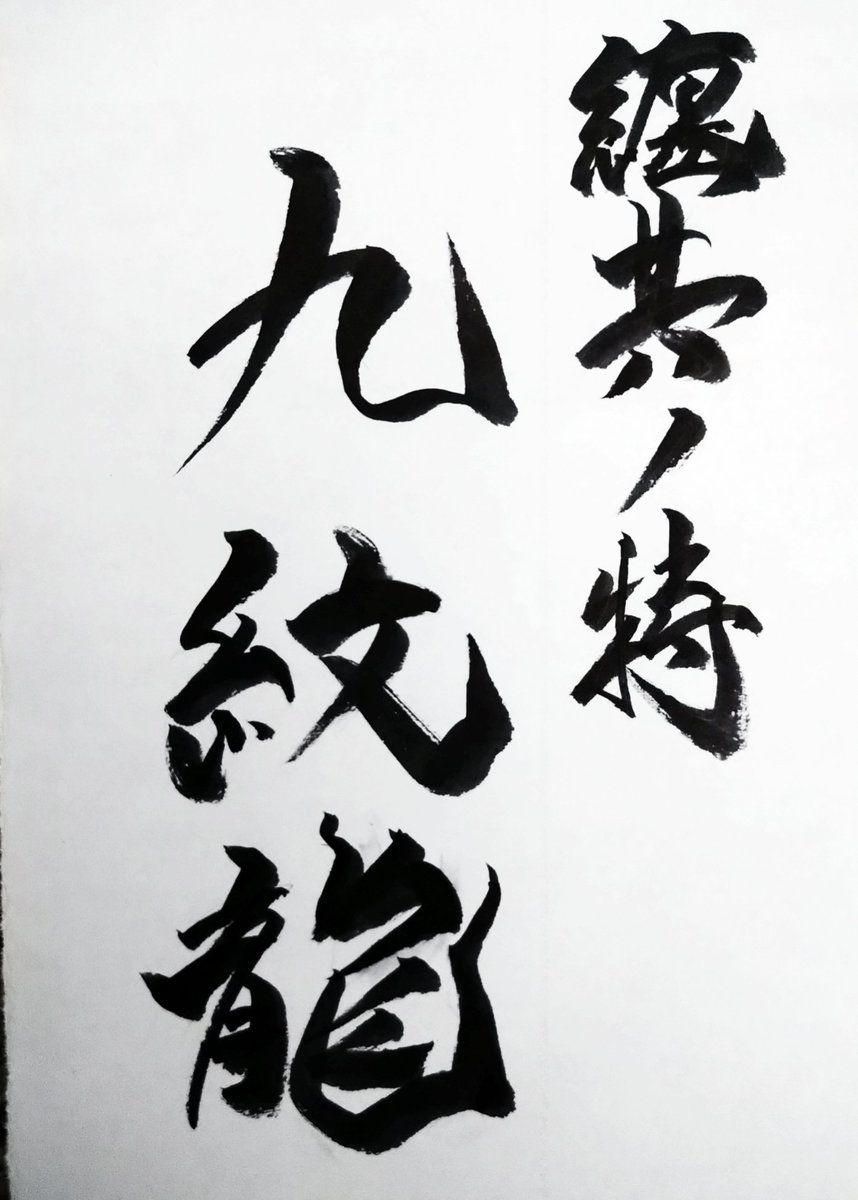 纏其ノ特
九紋龍